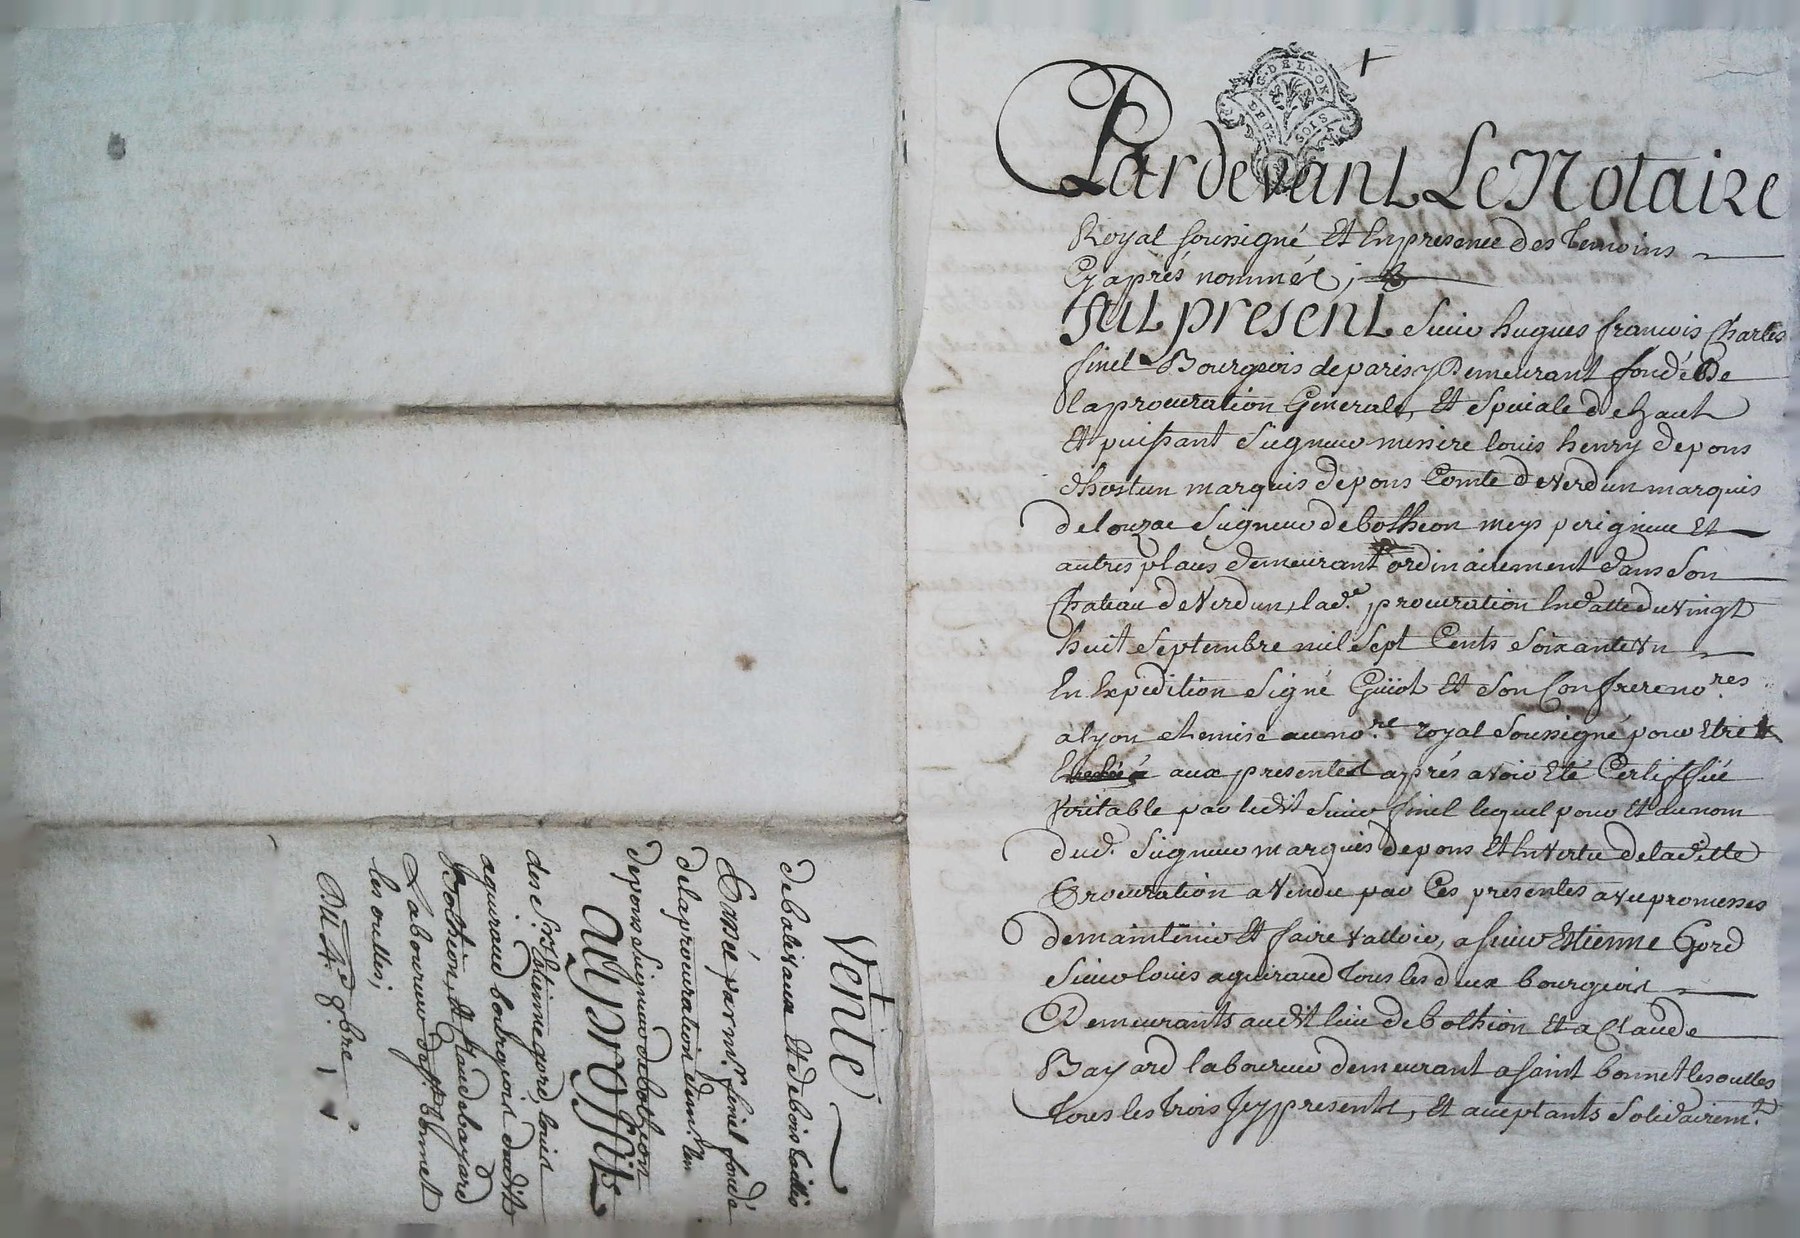 G. DE LYON
DEUX SOIS
Pardevant Le Notaire
Royal soussigné Et En presence des temoins
Cy après nommés ;
fut present Sieur hugues francois Charles
finel Bourgeois de paris y Demeurant fondé De
la procuration Generale, Et Speciale de haut
Et puissant Seigneur messire louis henry de pons
dhostun marquis de pons Comte de Verdun marquis
de louzac Seigneur de bothéon meys perigneux Et
autres places demeurant ordinairement dans Son
Chateau de Verdun, lad.e procuration En datte du vingt
huit Septembre mil Sept Cents Soixante Un
En Expedition Signé Guiot Et Son Confrere no.res
a lyon remise au no.re royal Soussigné pour Etre
aux presentes après avoir Eté Certiffiée
Veritable par ledit Sieur finel lequel pour Et au nom
dud. Seigneur marquis de pons Et En Vertu de laditte
Procuration a Vendu par Ces presentes avec promesses
de maintenir Et faire Valloir, a Sieur Etienne Gord
Sieur louis aguiraud tous les deux bourgeois
Demeurants audit lieu de bothion Et a Claude
Bayard laboureur demeurant a Saint bonnet les oulles
tous les trois Icy presents, Et acceptants Solidairem.t
Vente
de balivaux Et de bois taillis
Passée par m.r finel fondé
de la procuration de m.r
de pons Seigneur de bothion
au proffit
des S.rs Etienne gord, louis
aguiraud bourgeois dudit
Bothion, Et Claude bayard
Laboureur de S.t bonnet
les oulles ;
Du 4.e 8bre